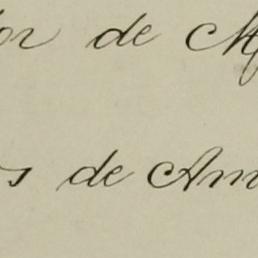 or de M
s de Am